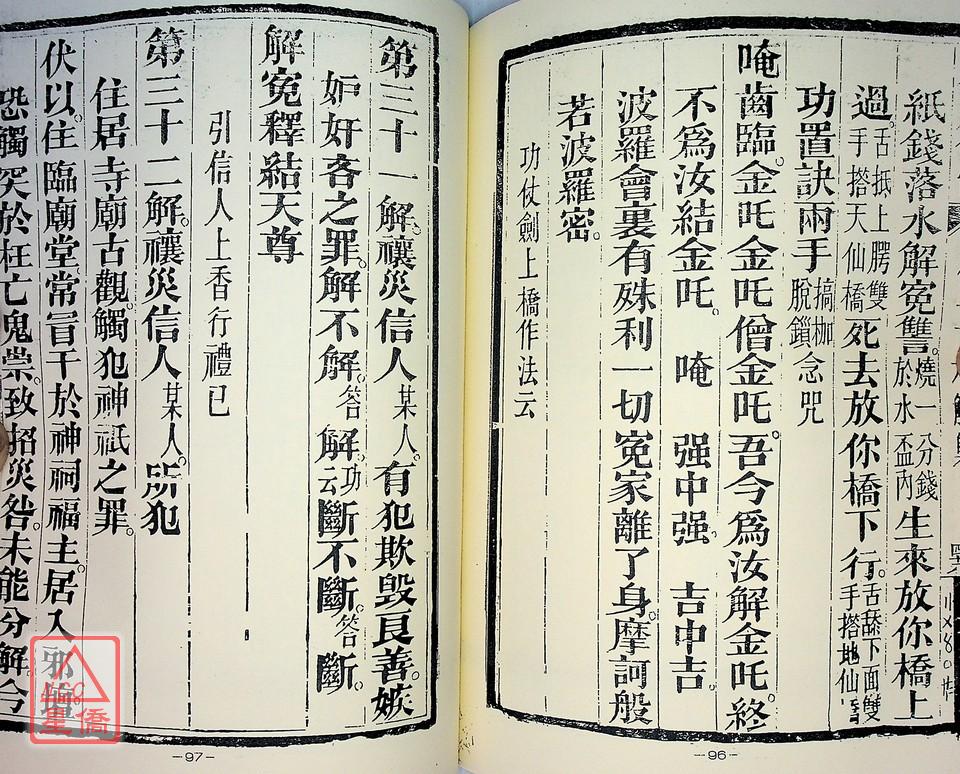 紙錢落水解寃讐。燒一分錢於水盃內生來放你橋上
過。舌抵上腭雙手撘天仙橋死去放你橋下行。舌舔下面雙手撘地仙
功置訣兩手搞枷脫鎖念咒
唵齒臨。金吒金吒僧金吒。吾今爲汝解金吒。終
不爲汝結金吒。唵强中强吉中吉
波羅會裏有殊利一切寃家離了身。摩訶般
若波羅密。
功仗劍上橋作法云
－96－
第三十一解。禳災信人某人。有犯欺毀良善。嫉
妒奸吝之罪。解不解。答解功云斷不斷。答斷。
解寃釋結天尊
引信人上香行禮已
第三十二解。禳災信人某人。所犯
住居寺廟古觀。觸犯神祇之罪。
伏以。住臨廟堂。常冒干於神祠福主。居入邪壇。
恐觸突於枉亡鬼祟。致招災咎。未能分解。今
星僑
－97－